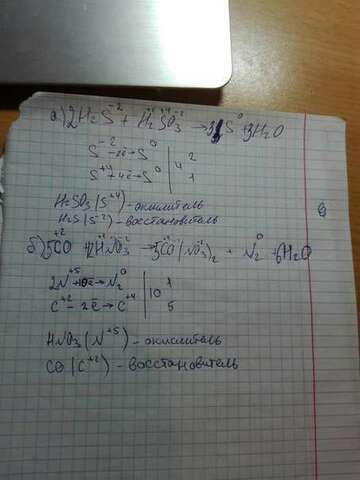 а) 2H₂S⁻² + H₂⁺¹S⁺⁴O₃⁻² → 3S⁰ + 3H₂O
S⁻² - 2ē → S⁰ | 4 | 2
S⁺⁴ + 4ē → S⁰ | 1
H₂SO₃ (S⁺⁴) - окислитель
H₂S (S⁻²) - восстановитель
б) 5CO⁺² + 12HNO₃ → 5CO(NO₃)₂ + N₂⁰ + 6H₂O
2N⁺⁵ +10ē → N₂⁰ | 10 | 1
C⁺² - 2ē → C⁺⁴ | 5
HNO₃ (N⁺⁵) - окислитель
CO (C⁺²) - восстановитель